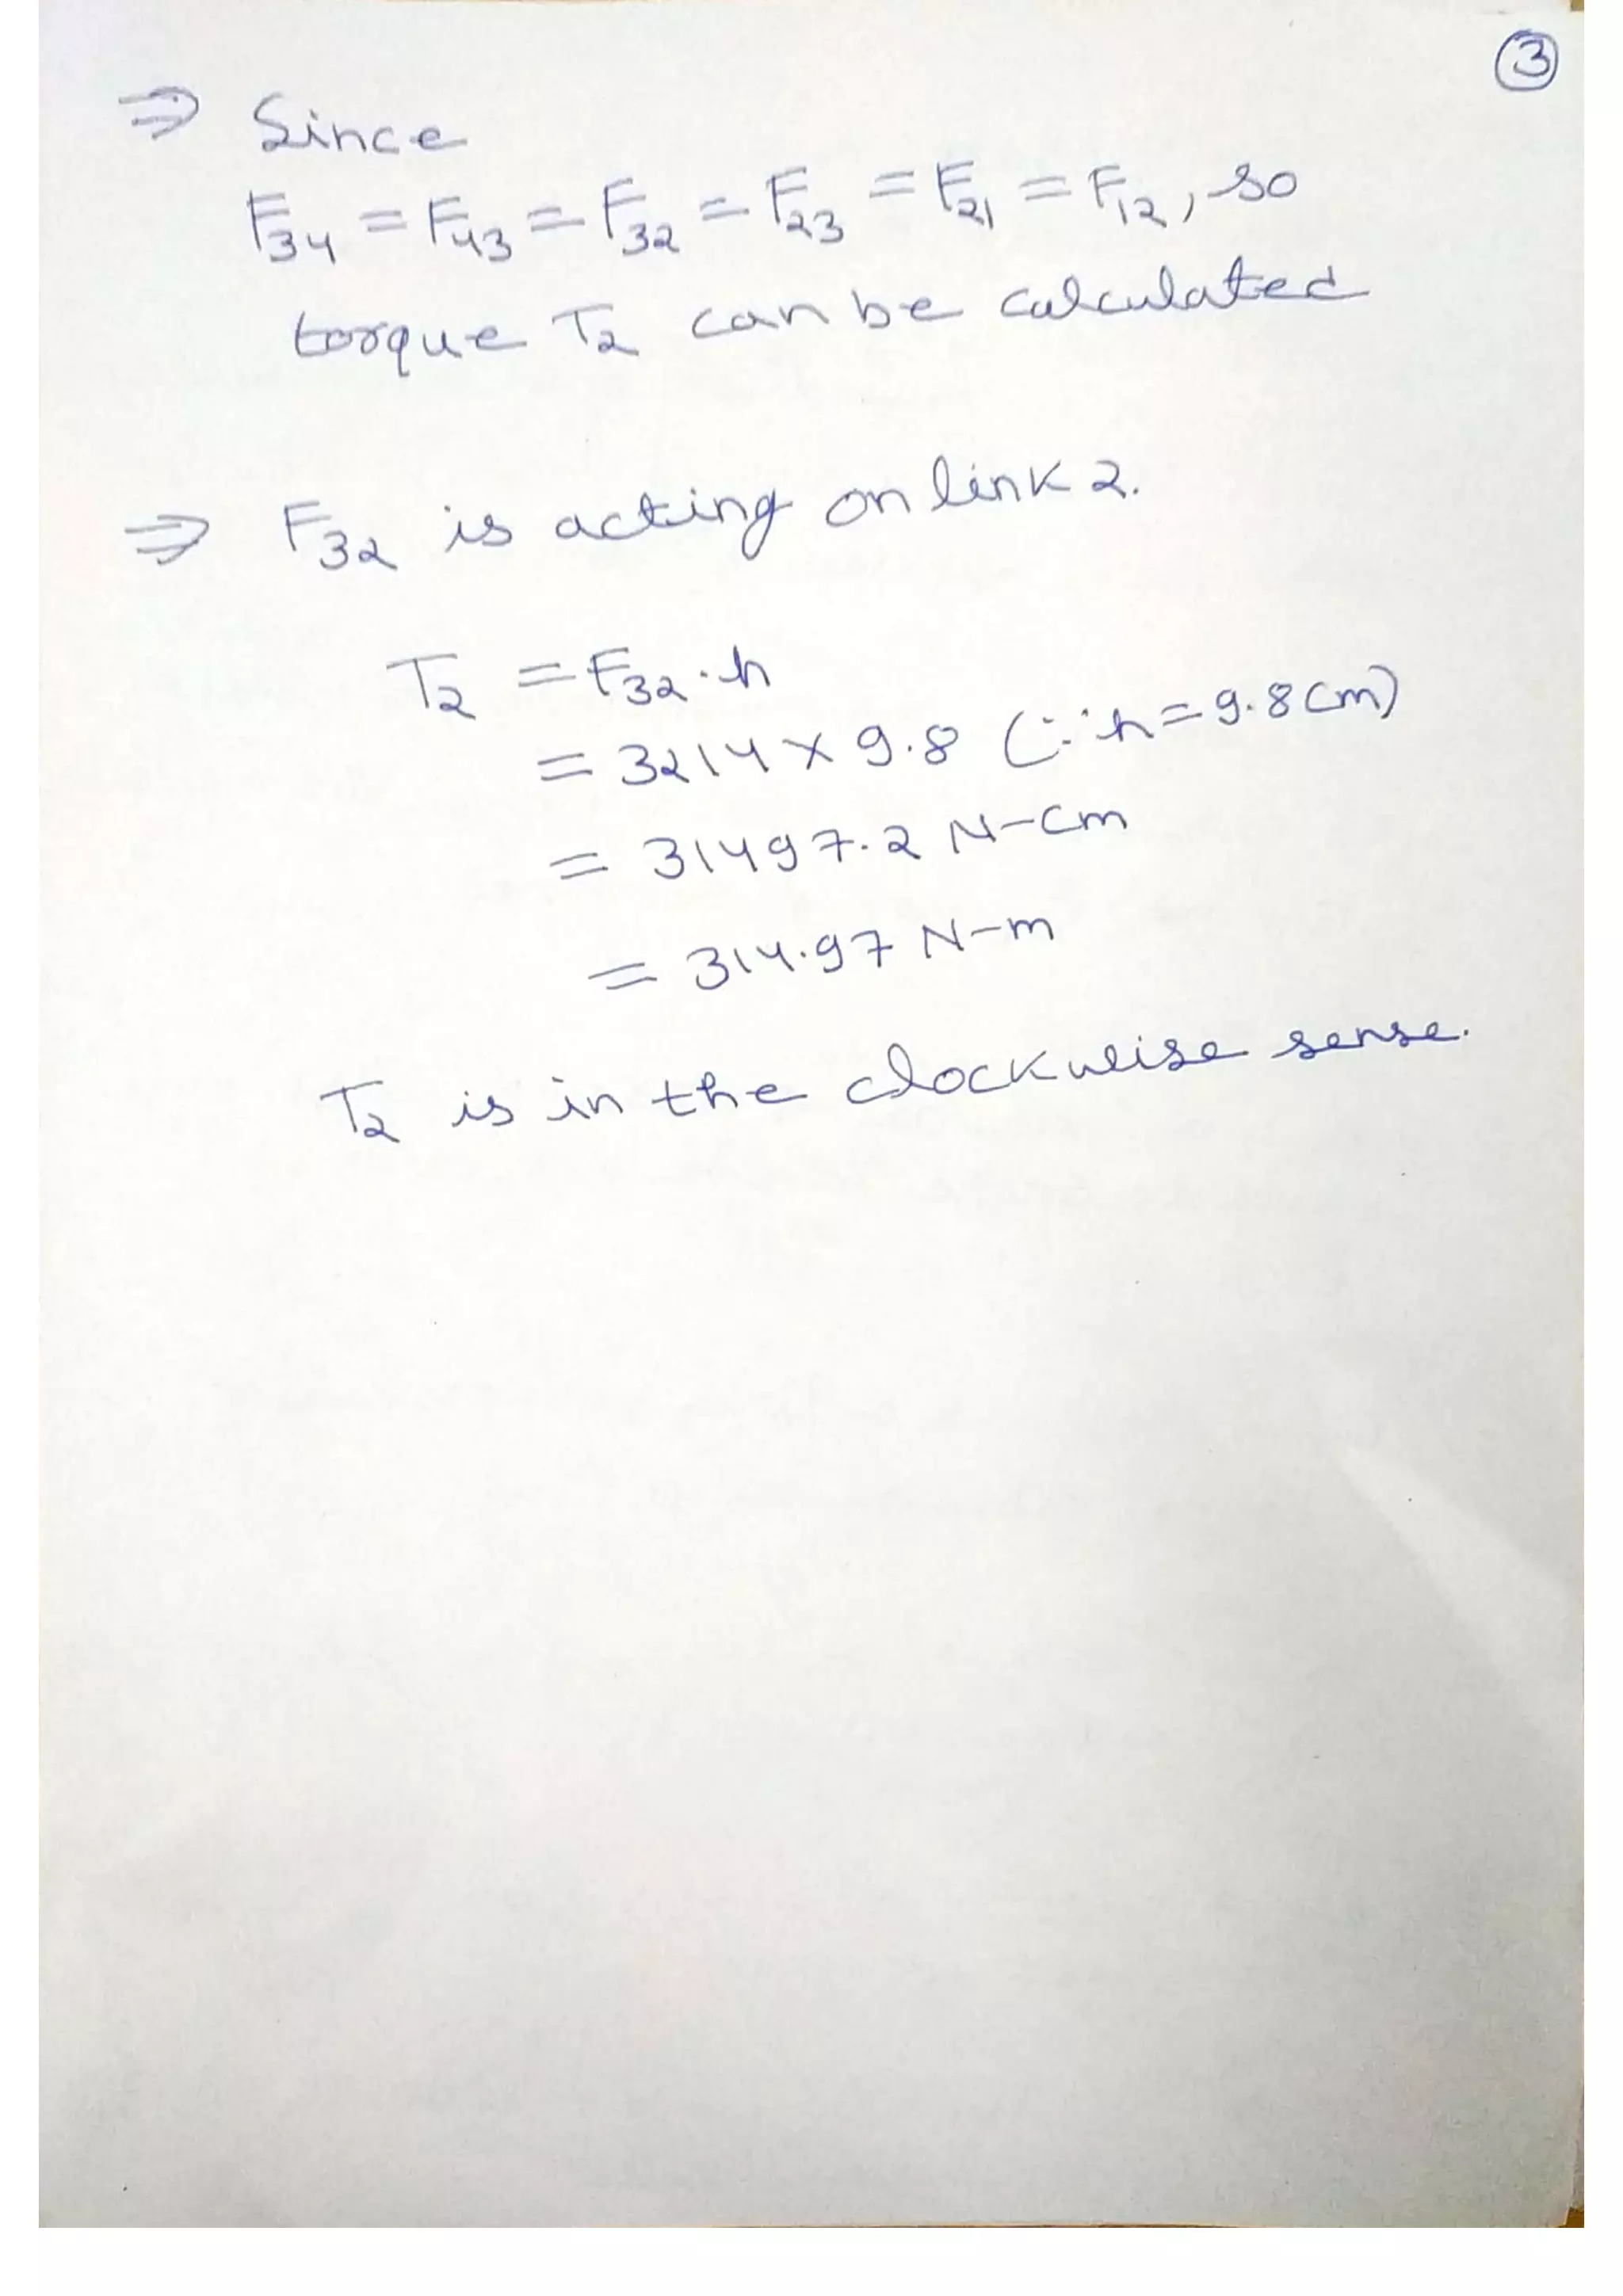 ③
⇒ Since
F34 = F43 = F32 = F23 = F21 = F12, so
torque T2 can be calculated
⇒ F32 is acting on link 2.
T2 = F32 . h
= 3214 × 9.8 (∵ h = 9.8 cm)
= 31497.2 N-cm
= 314.97 N-m
T2 is in the clockwise sense.